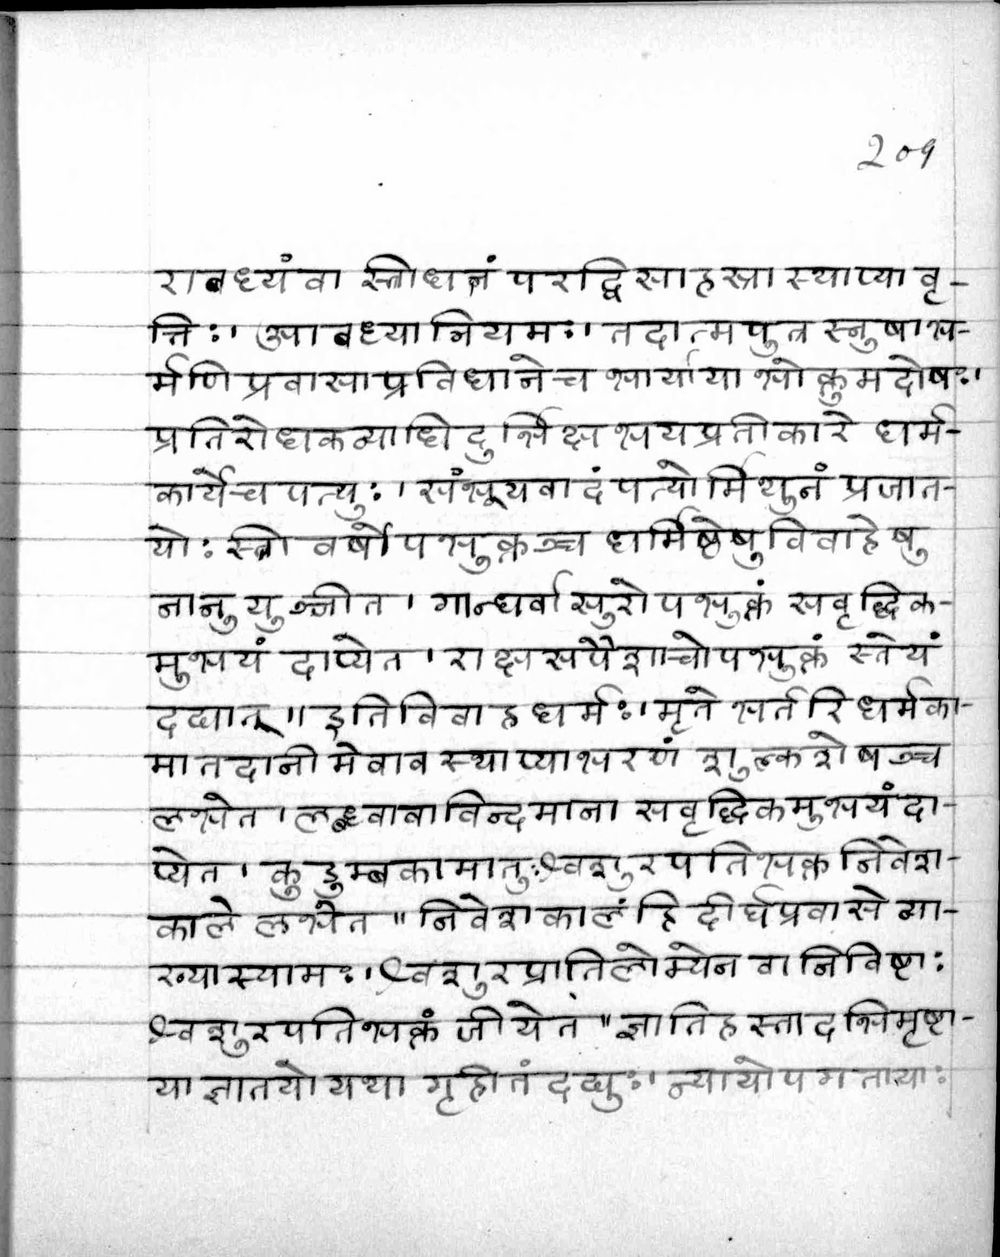 209
राबध्यं वा स्त्रीधनं परद्विसाहस्रा स्थाप्या वृ-
त्तिः। आबध्यानियमः। तदात्मपुत्र स्नुषाभ-
र्मणि प्रवासाप्रतिधाने च भार्याया भोक्तुमदोषः।
प्रतिरोधकव्याधिदुर्भिक्षभयप्रतीकारे धर्म-
कार्ये च पत्युः। संभूय वा दंपत्योर्मिथुनं प्रजात-
योः स्त्री वर्षोपभुक्तञ्च धर्मिष्ठेषु विवाहेषु
नानुयुञ्जीत। गान्धर्वासुरोपभुक्तं सवृद्धिक-
मुभयं दाप्येत। राक्षसपैशाचोपभुक्तं स्तेयं
दद्यात्॥ इति विवाहधर्मः। मृते भर्तरि धर्मका-
मा तदानीमेवावस्थाप्याभरणं शुल्कशेषञ्च
लभेत। लब्ध्वा वा विन्दमाना सवृद्धिकमुभयं दा-
प्येत। कुडुम्बकामातुः श्वशुरपतिभक्त निवेश-
काले लभेत॥ निवेशकालं हि दीर्घप्रवासे व्या-
ख्यास्यामः। श्वशुरप्रातिलोम्येन वा निविष्टाः
श्वशुरपतिभक्तं जीयेत॥ ज्ञातिहस्तादभिमृष्टा-
या ज्ञातयो यथा गृहीतं दद्युः। न्यायोपगतायाः